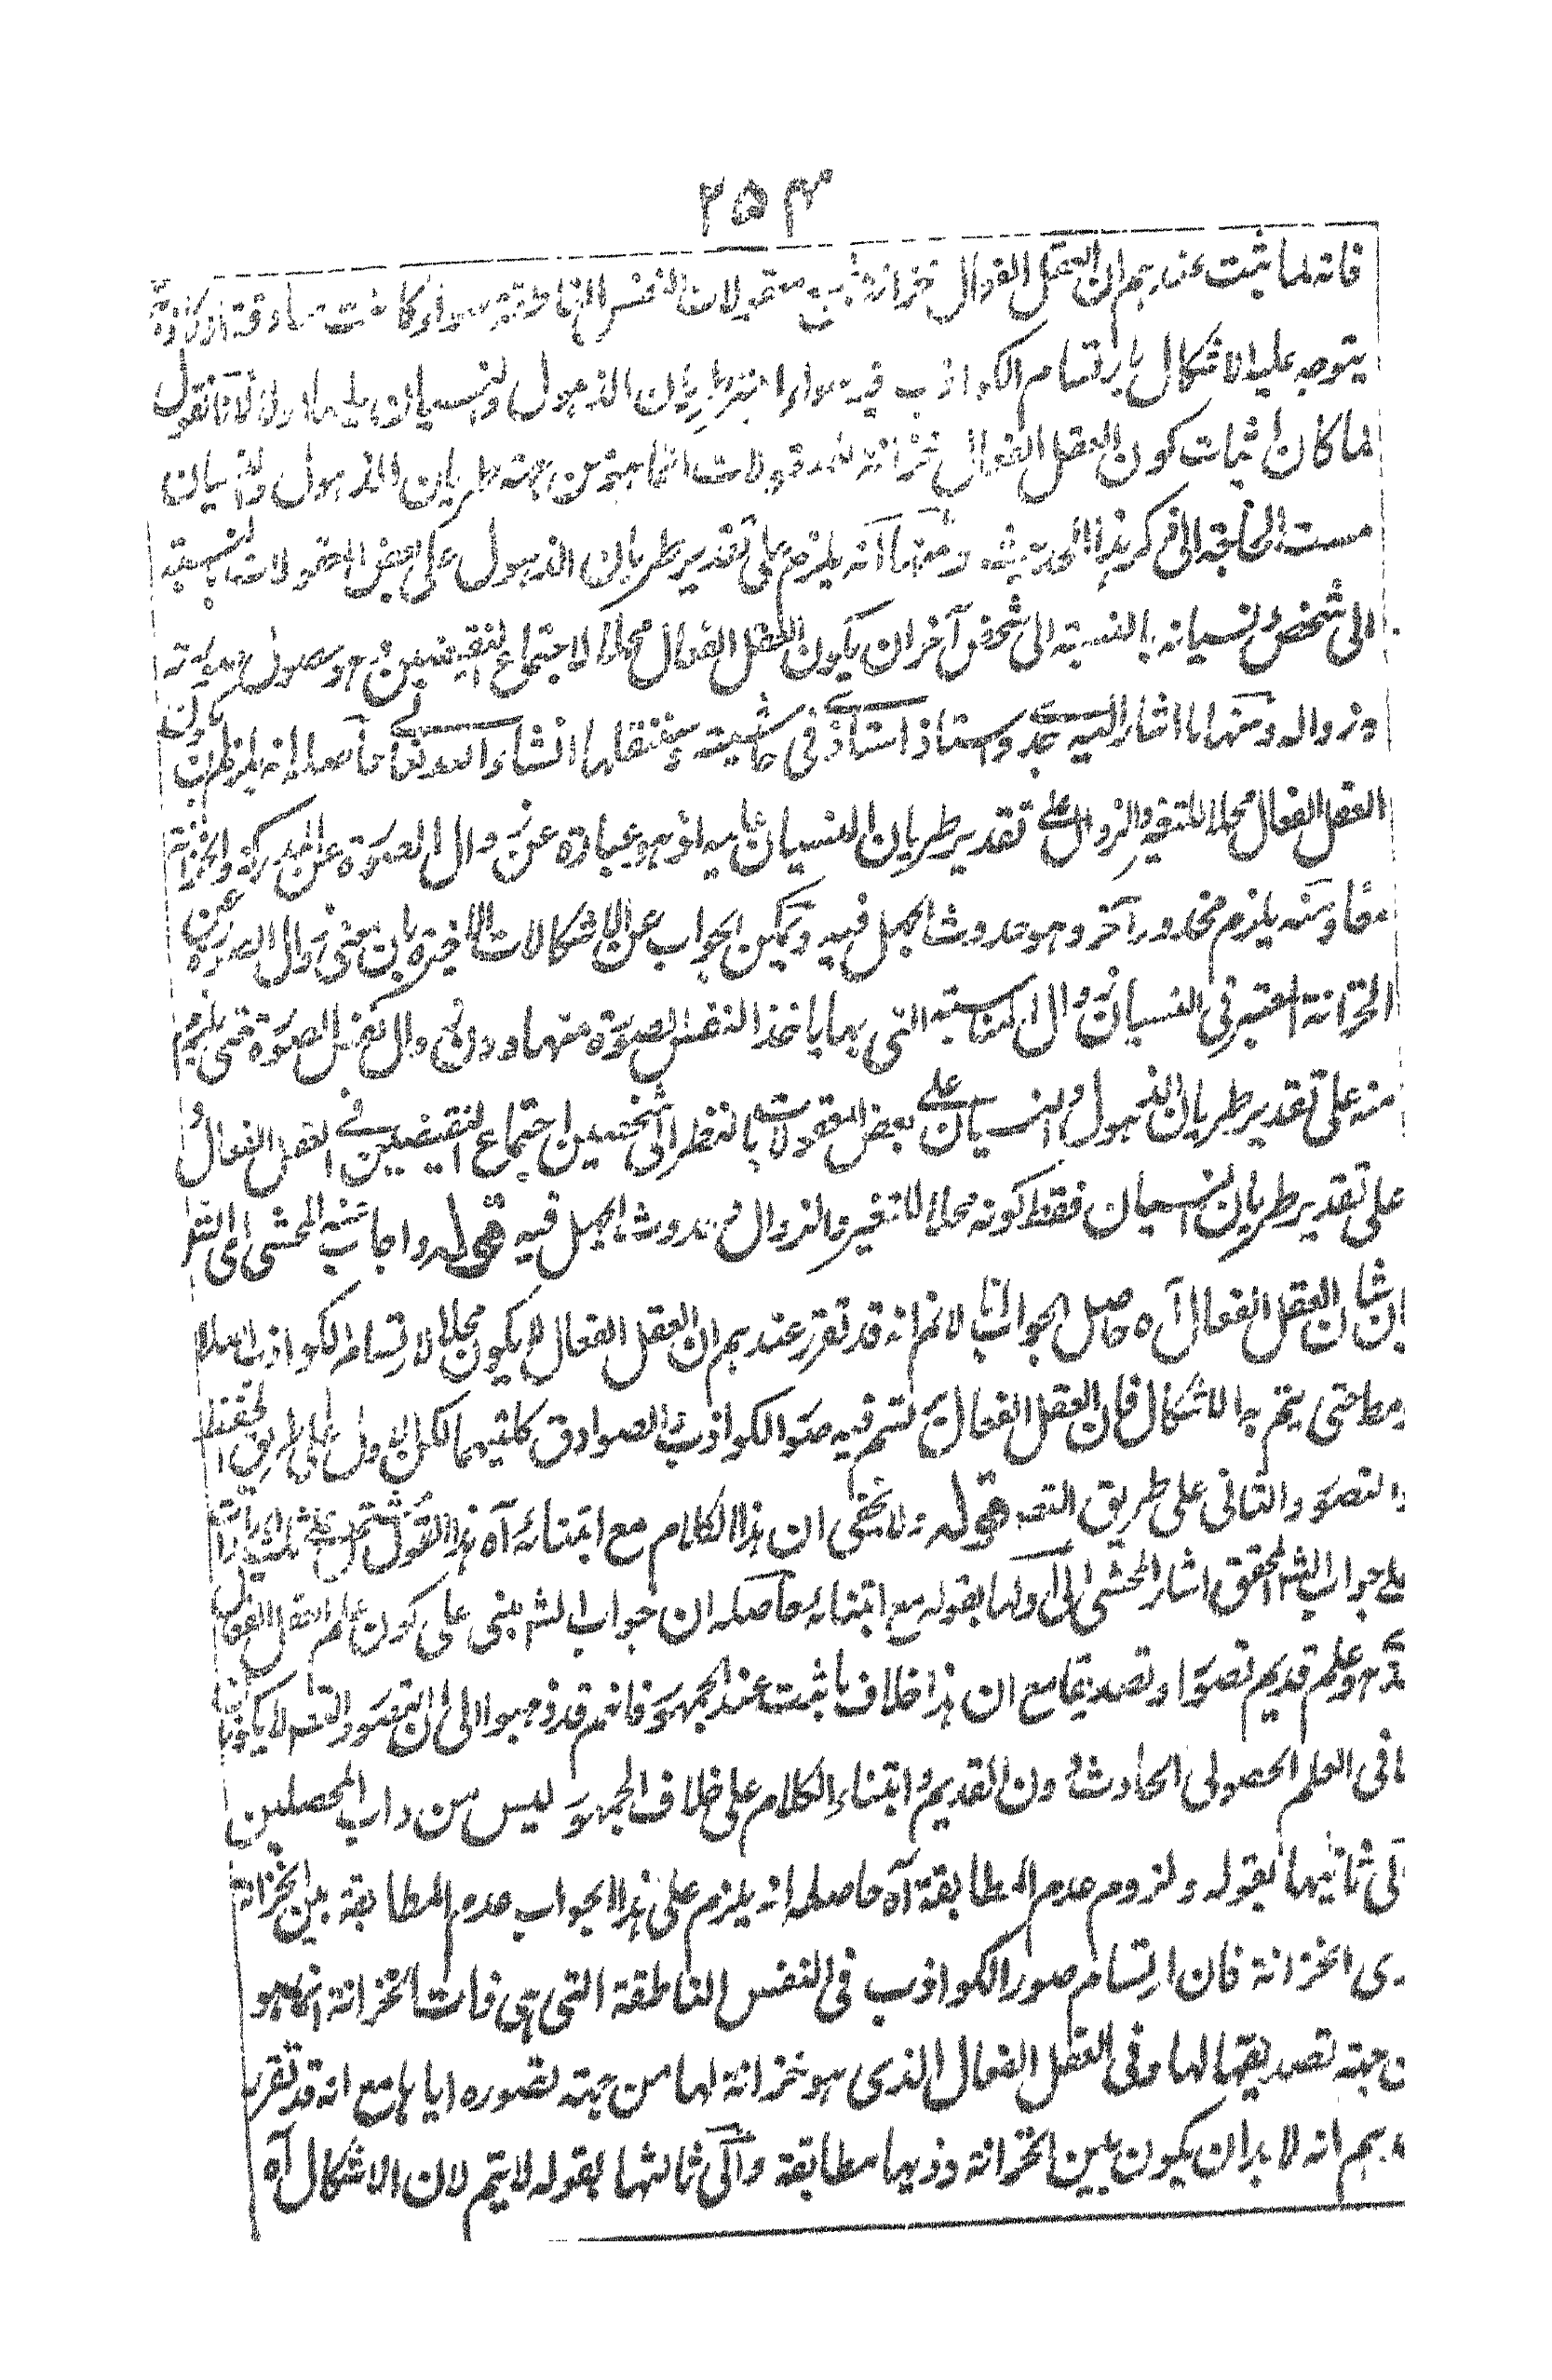 ۲۵۴
فانه لما ثبت عندهم ان العقل الفعال خزانة لجميع معقولات النفس الناطقة سواء كانت صادقة او كاذبة
يتوجه عليه الاشكال بارتسام الكواذب فيه سواء اعتبر طريان الذهول والنسيان عليها اولا لانا نقول
لما كان اثبات كون العقل الفعال خزانة للمعقولات انما هو من جهة طريان الذهول والنسيان
مست الحاجة الى ذكر هذا الحديث ومنها انه يلزم على تقدير طريان الذهول على بعض المعقولات بالنسبة
الى شخص ونسيانه بالنسبة الى شخص آخر ان يكون العقل الفعال محلا لاجتماع النقيضين وهو حصول صورته
وزواله ومنها ما اشار اليه جد واستاذ استاذي في حاشيته وسننقلها انشاء الله تعالى حاصله انه يلزم ان يكون
العقل الفعال محلا للتغير والزوال على تقدير طريان النسيان عليه اذ هو عبارة عن زوال الصورة عن المدركة والخزانة
معا ومنه يلزم محذور آخر وهو حدوث الجهل فيه ويمكن الجواب عن الاشكالات الاخيرة بان معنى زوال الصورة عن
الخزانة المعتبر في النسيان زوال المناسبة التي بها ياخذ النفس الصورة منها دون زوال نفس الصورة حتى يلزم
منه على تقدير طريان الذهول والنسيان على بعض المعقولات بالنظر الى شخصين اجتماع النقيضين في العقل الفعال و
على تقدير طريان النسيان فقط كونه محلا للتغير والزوال وحدوث الجهل فيه قوله واجاب عنه المحشي
ان شان العقل الفعال آه حاصل الجواب انا لا نم انه قد تقرر عندهم ان العقل الفعال لا يكون محلا لارتسام الكواذب اصلا
حتى يتم به الاشكال فان العقل الفعال يرتسم فيه صور الكواذب والصوادق كلتيهما لكن الاول على طريق
والتصور والثاني على طريق التصـ قوله ولا يخفى ان هذا الكلام مع ابتنائه آه هذا القول مشتمل على ثلث ايرادات
على جواب الشـ المحقق اشار المحشي الى اولها بقوله مع ابتنائه حاصله ان جواب الشـ مبني على كون علم العقل الفعال
الذي هو علم قديم تصورا وتصديقا مع ان هذا خلاف ما ثبت عند الجمهور فانهم قد ذهبوا الى ان التصور والتصـ لا يكونان
الا في العلم الحصولي الحادث دون القديم وابتناء الكلام على خلاف الجمهور ليس من داب المحصلين
والى ثانيها بقوله ولزوم عدم المطابقة آه حاصله انه يلزم على هذا الجواب عدم المطابقة بين الخزانة
وذي الخزانة فان ارتسام صور الكواذب في النفس الناطقة التي هي ذات الخزانة انما هو
من جهة تصديقها لها وفي العقل الفعال الذي هو خزانة لها من جهة تصوره اياها مع انه قد تقرر
عندهم انه لا بد ان يكون بين الخزانة وذيها مطابقة والى ثالثها بقوله لا يتم لان الاشكال آه